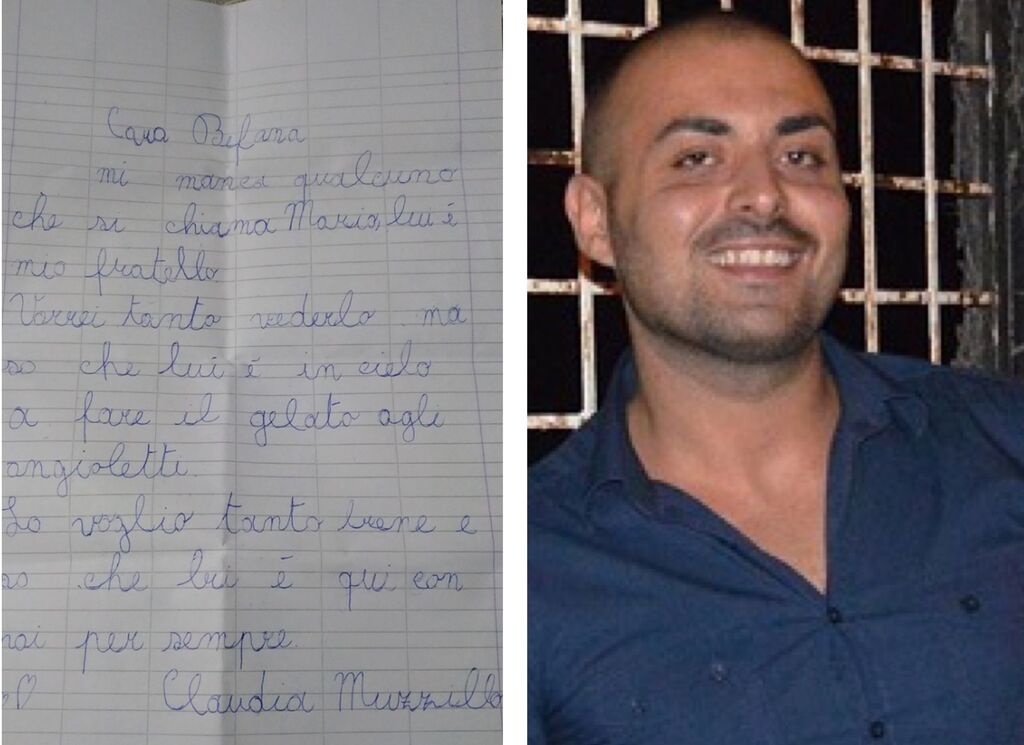 Cara Befana
mi manca qualcuno
che si chiama Mario, lui è
mio fratello.
Vorrei tanto vederlo ma
so che lui è in cielo
a fare il gelato agli
angioletti.
Lo voglio tanto bene e
so che lui è qui con
noi per sempre.
♡ Claudia Muzzillo